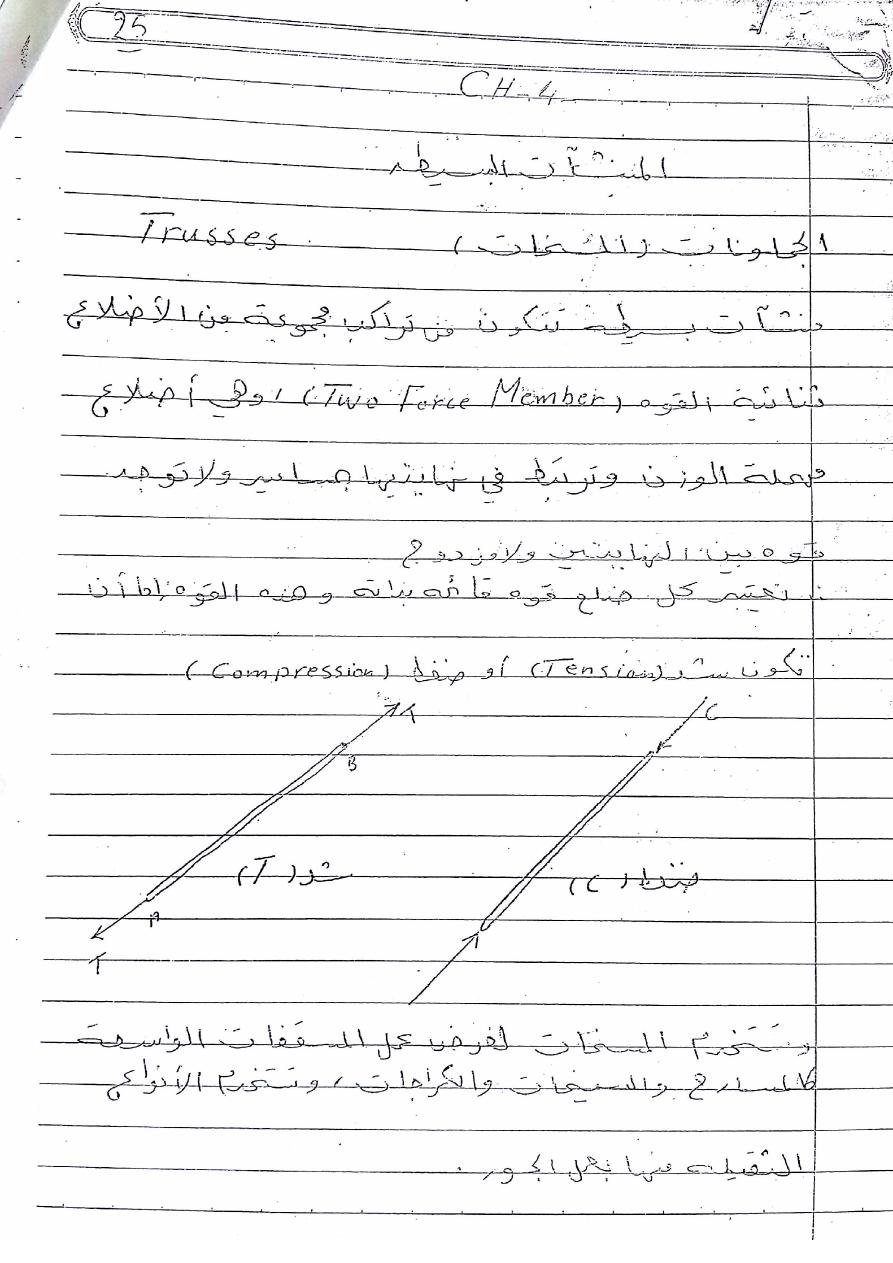 25
CH-4
المنشآت البسيطه
الجملونات (المسنمات) Trusses
منشآت بسيطة تتكون من تراكب مجموعة من الأضلاع
ثنائية القوه (Two Force Member)، وهي أضلاع
مهملة الوزن وترتبط في نهايتيها بمسامير ولا توجد
قوه بين النهايتين ولا مزدوج
نعتبر كل ضلع قوه قائمه بذاته وهذه القوه إما أن
تكون شد (Tension) أو ضغط (Compression)
T
C
B
شد (T)
ضغط (C)
A
T
وتستخدم المسنمات لغرض عمل المسقفات الواسعة
كالمسارح والسينمات والكراجات، وتستخدم الأنواع
الثقيله منها بعمل الجسور.